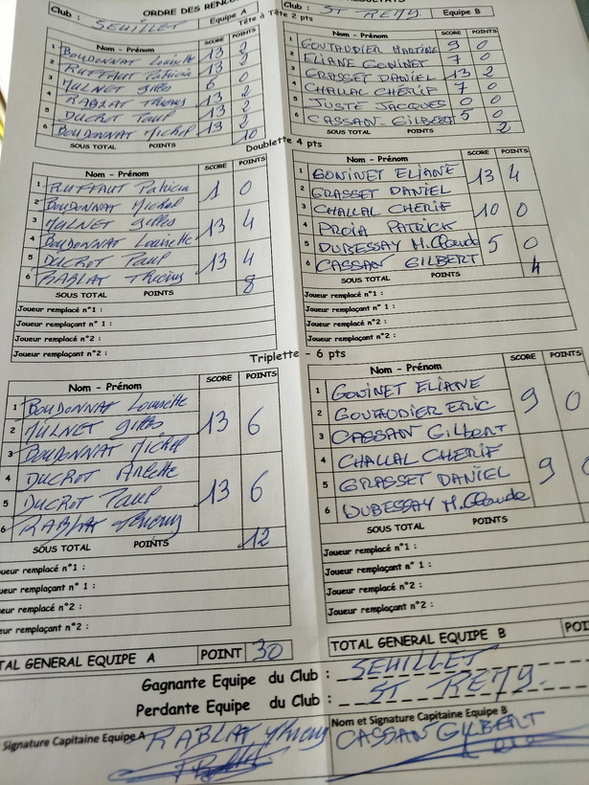 ORDRE DES RENCO
Club : SEUILLET Equipe A
Club : ST REMY Equipe B
Tête à Tête 2 pts
Nom - Prénom SCORE POINTS
1 BOUDONNAT Louisette 13 2
2 RUFFAUT Patricia 13 2
3 MULNET Gilles 6 0
4 RABLAT Thierry 13 2
5 DUCROT Paul 13 2
6 BOUDONNAT Michel 13 2
SOUS TOTAL POINTS 10
Nom - Prénom SCORE POINTS
1 GOUTAUDIER MARTINE 9 0
2 ELIANE GONINET 7 0
3 GRASSET DANIEL 13 2
4 CHALLAL CHERIF 7 0
5 JUSTE JACQUES 0 0
6 CASSAN GILBERT 5 0
SOUS TOTAL POINTS 2
Doublette 4 pts
Nom - Prénom SCORE POINTS
1 RUFFAUT Patricia
2 BOUDONNAT Michel 1 0
3 MULNET Gilles
4 BOUDONNAT Louisette 13 4
5 DUCROT Paul
6 RABLAT Thierry 13 4
SOUS TOTAL POINTS 8
Joueur remplacé n°1 :
Joueur remplaçant n°1 :
Joueur remplacé n°2 :
Joueur remplaçant n°2 :
Nom - Prénom SCORE POINTS
1 GONINET ELIANE
2 GRASSET DANIEL 13 4
3 CHALLAL CHERIF
4 PROIA PATRICK 10 0
5 DUBESSAY M.Claude
6 CASSAN GILBERT 5 0
SOUS TOTAL POINTS 4
Joueur remplacé n°1 :
Joueur remplaçant n°1 :
Joueur remplacé n°2 :
Joueur remplaçant n°2 :
Triplette - 6 pts
Nom - Prénom SCORE POINTS
1 BOUDONNAT Louisette
2 MULNET Gilles 13 6
3 BOUDONNAT Michel
4 DUCROT Arlette
5 DUCROT Paul 13 6
6 RABLAT Thierry
SOUS TOTAL POINTS 12
oueur remplacé n°1 :
ueur remplaçant n° 1 :
eur remplacé n°2 :
ur remplaçant n°2 :
Nom - Prénom SCORE POINTS
1 GONINET ELIANE
2 GOUTAUDIER ERIC 9 0
3 CASSAN GILBERT
4 CHALLAL CHERIF
5 GRASSET DANIEL 9
6 DUBESSAY M.Claude
SOUS TOTAL POINTS
Joueur remplacé n°1 :
Joueur remplaçant n°1 :
Joueur remplacé n°2 :
Joueur remplaçant n°2 :
TAL GENERAL EQUIPE A POINT 30
TOTAL GENERAL EQUIPE B POI
Gagnante Equipe du Club : SEUILLET
Perdante Equipe du Club : ST REMY
Signature Capitaine Equipe A RABLAT Thierry
Nom et Signature Capitaine Equipe B
CASSAN GILBERT